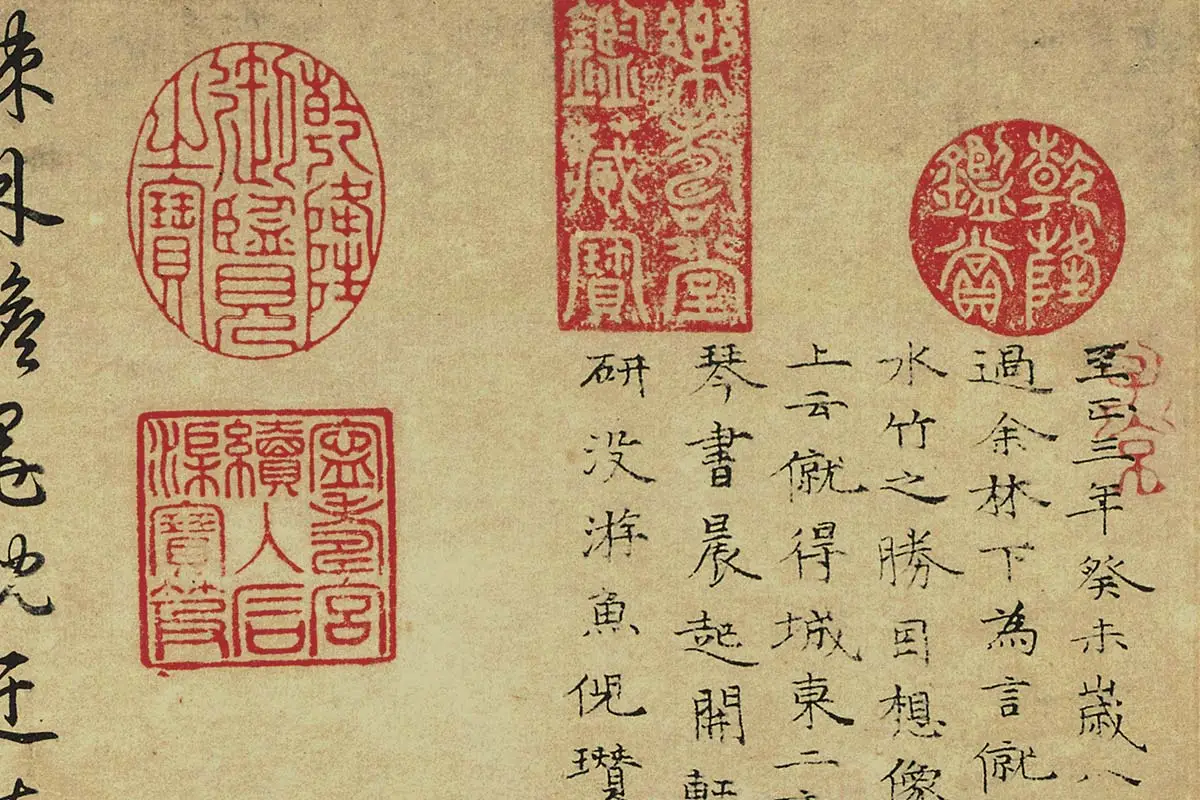 乾隆
鑑賞
至正三年癸未歲八
過余林下為言僦
水竹之勝因想像
上云僦得城東二
琴書晨起開軒
研没游魚倪瓚
樂壽堂
鑑藏寶
乾隆
御覽
之寶
寧壽宮
續入石
渠寶笈